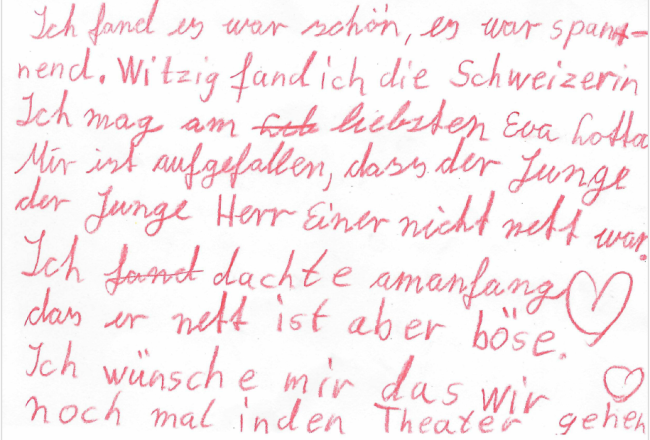 Ich fand es war schön, es war span-
nend. Witzig fand ich die Schweizerin
Ich mag am liebsten Eva Lotta
Mir ist aufgefallen, dass der Junge
der Junge Herr Einer nicht nett war.
Ich fand dachte amanfang
das er nett ist aber böse.
Ich wünsche mir das wir
noch mal inden Theater gehen